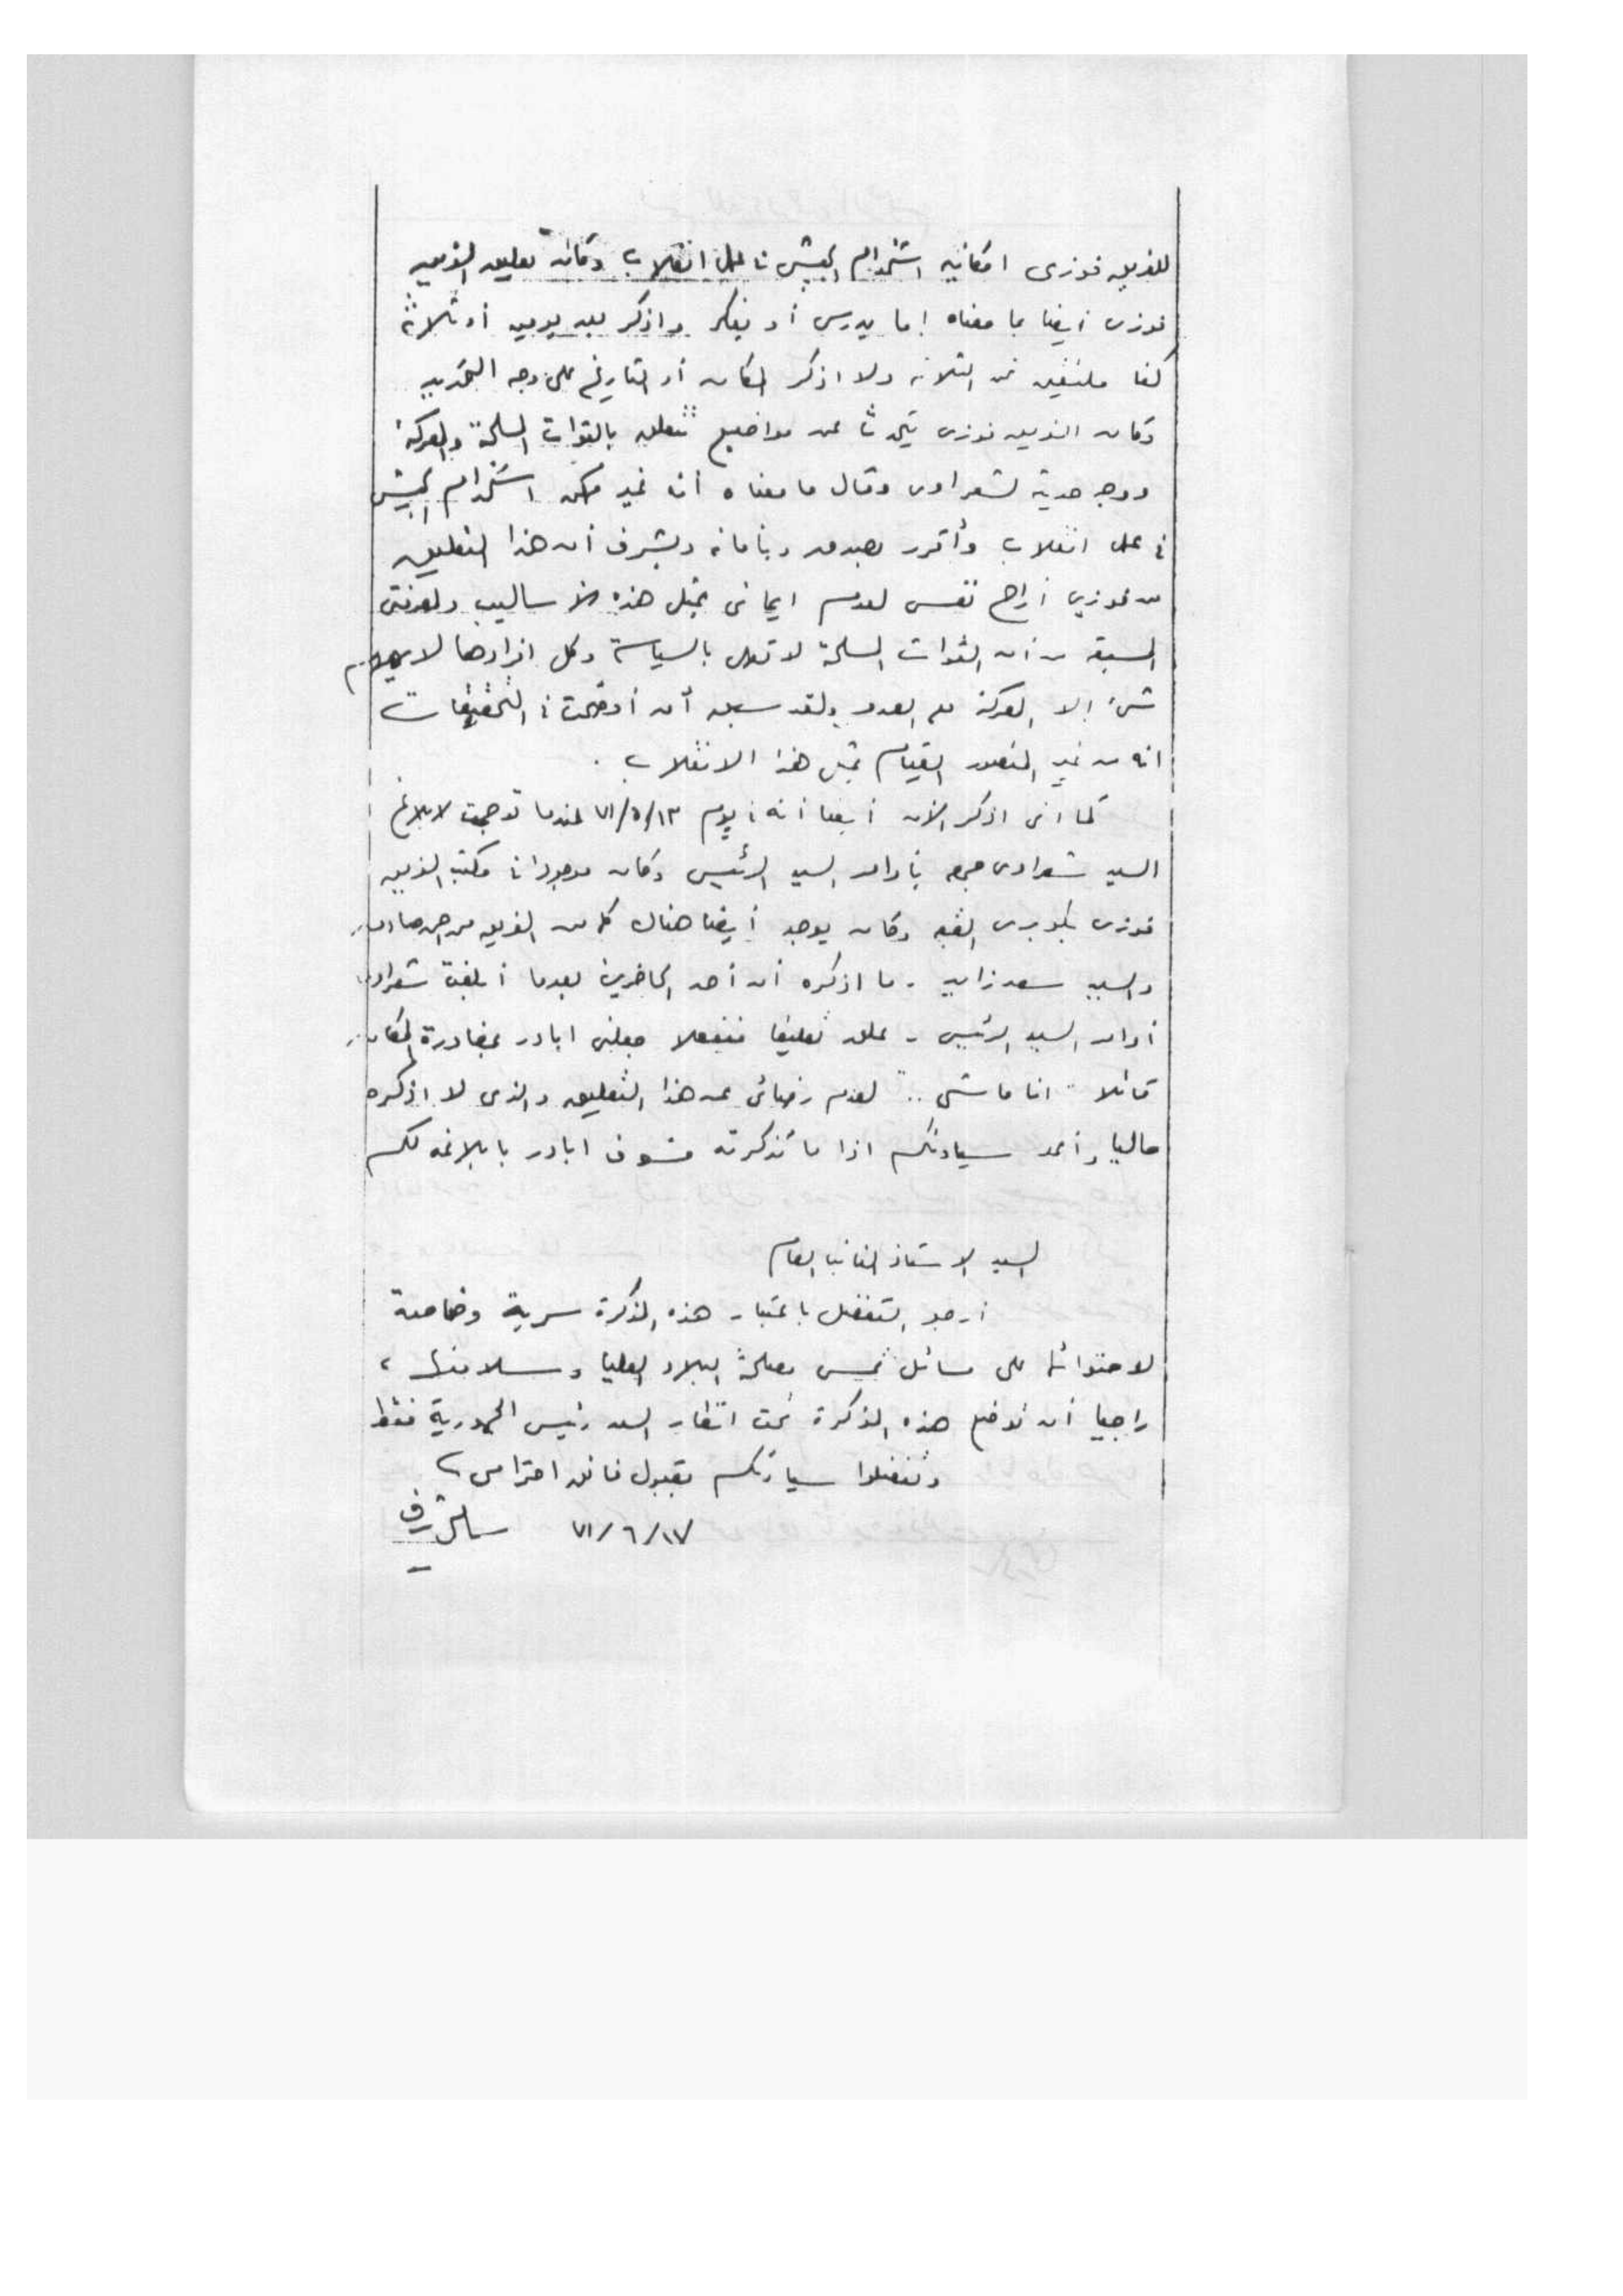 للفريق فوزى امكانيه استخدام الجيش فى عمل انقلاب وكان تعليق الفريق
فوزى ايضا بما معناه إما يدرس أو يفكر واذكر بعد يومين أو ثلاثة
كنا ملتقين نحن الثلاثه ولا اذكر المكان أو التاريخ على وجه التحديد
وكان الفريق فوزى يتحدث عن مواضيع تتعلق بالقوات المسلحة والمعركة
ووجه حديثه لشعراوى وقال ما معناه أنه غير ممكن استخدام الجيش
فى عمل انقلاب وأقرر بصدق وبأمانه وبشرف أن هذا التعليق
من فوزى أراح نفسى لعدم ايمانى بمثل هذه الأساليب ولمعرفتى
المسبقه من أن القوات المسلحة لا تعمل بالسياسة وكل افرادها لا يهمهم
شئ إلا المعركة مع العدو ولقد سبق أن أوضحت فى التحقيقات
انه من غير المتصور القيام بمثل هذا الانقلاب .
كما انى اذكر الآن أيضا أنه فى يوم ٧١/٥/١٣ عندما توجهت لابلاغ
السيد شعراوى جمعه بأوامر السيد الرئيس وكان موجودا فى مكتب الفريق
فوزى بكوبرى القبه وكان يوجد أيضا هناك كل من الفريق محمد صادق
والسيد سعد زايد . ما اذكره أن أحد الحاضرين بعدما أبلغت شعراوى
أوامر السيد الرئيس - علق تعليقا منفعلا جعلنى ابادر بمغادرة المكان
قائلا " انا ماشى .. " لعدم رضائى عن هذا التعليق والذى لا اذكره
حاليا وأعد سيادتكم اذا ما تذكرته فسوف ابادر بابلاغه لكم
السيد الاستاذ النائب العام
أرجو التفضل باعتبار هذه المذكرة سرية وخاصة
لاحتوائها على مسائل تمس مصلحة البلاد العليا وسلامتها ،
راجيا أن توضع هذه المذكرة تحت انظار السيد رئيس الجمهورية فقط
وتفضلوا سيادتكم بقبول فائق احترامى ،
٧١/٦/١٧ سامى شرف